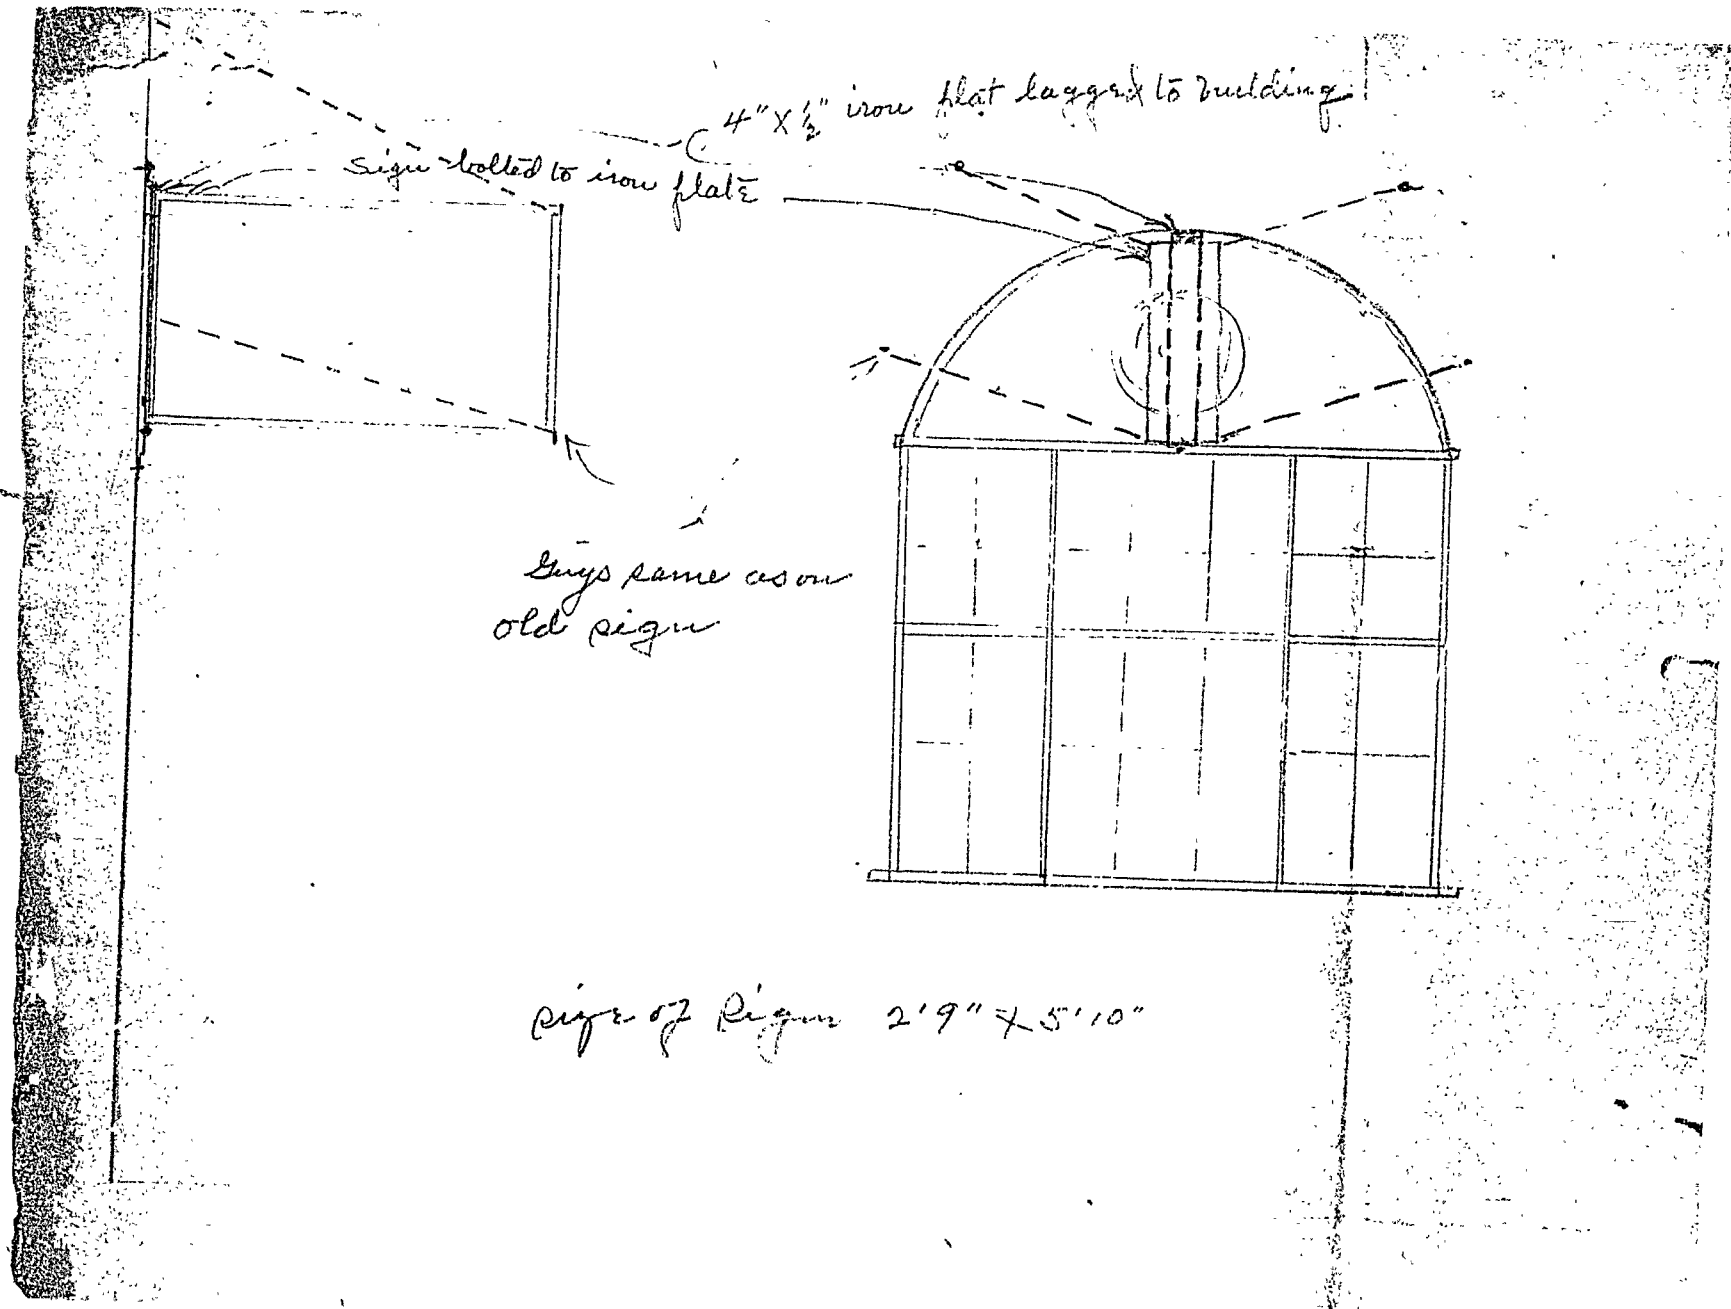 4" X ½" iron flat lagged to building
sign bolted to iron plate
Guys same as on
old sign
size of sign 2'9" X 5'10"